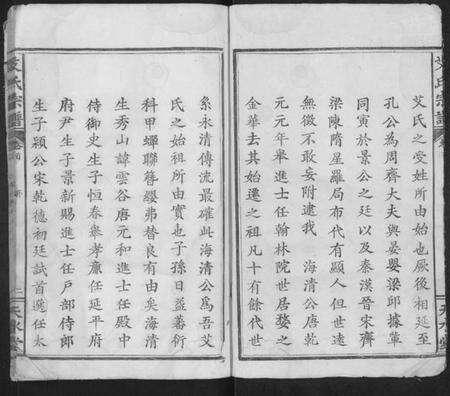 艾氏宗譜
艾氏之受姓所由始也厥後相延至
孔公為周齊大夫與晏嬰梁邱據輩
同寅於景公之廷以及秦漢晉宋齊
梁陳隋星羅局布代有顯人但世遠
無徵不敢妄附逮我　海清公唐乾
元元年舉進士任翰林院世居婺之
金華去其始遷之祖凡十有餘代世
系永清傳流最確此海清公為吾艾
氏之始祖所由實也子孫日益蕃衍
科甲蟬聯簪纓弗替良有由矣海清
生秀山諱雲谷唐元和進士任殿中
侍御史生子恒春舉孝廉任延平府
府尹生子景新賜進士任戶部侍郎
生子穎公宋乾德初廷試首選任太
艾氏宗譜
天水堂